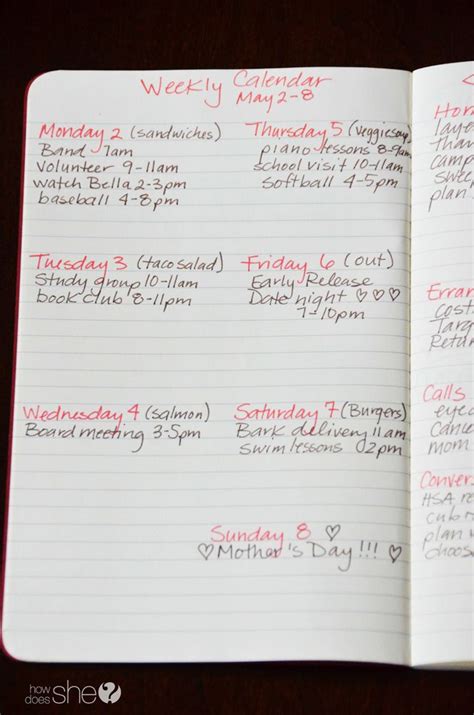 Weekly Calendar
May 2-8
Monday 2 (sandwiches)
Band 7am
Volunteer 9-11am
watch Bella 2-3pm
baseball 4-8pm
Tuesday 3 (taco salad)
Study group 10-11am
book club 8-11pm
Wednesday 4 (salmon)
Board meeting 3-5pm
Thursday 5 (veggie soup
piano lessons 8-9am
school visit 10-11am
softball 4-5pm
Friday 6 (out)
Early Release
Date night ♡♡♡
7-10pm
Saturday 7 (Burgers)
Bark delivery 11am
swim lessons 2pm
Sunday 8 ♡
♡Mother's Day!!! ♡
camp
plan
Costc
Targe
Retur
Calls
Cance
mom
Convers
HSA re
plan w
choose
how does she?